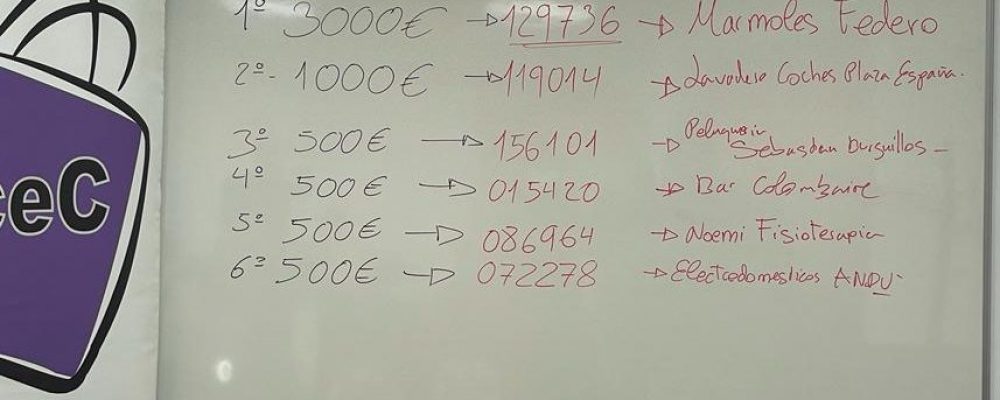 eC
1º 3000€ → 129736 → Marmoles Federo
2º- 1000€ → 119014 → Lavadero Coches Plaza España.
3º 500€ → 156101 → Peluqueria Sebastian Burguillos -
4º 500€ → 015420 → Bar Colombaire
5º 500€ → 086964 → Noemi Fisioterapia
6º 500€ → 072278 → Electrodomesticos ANDU